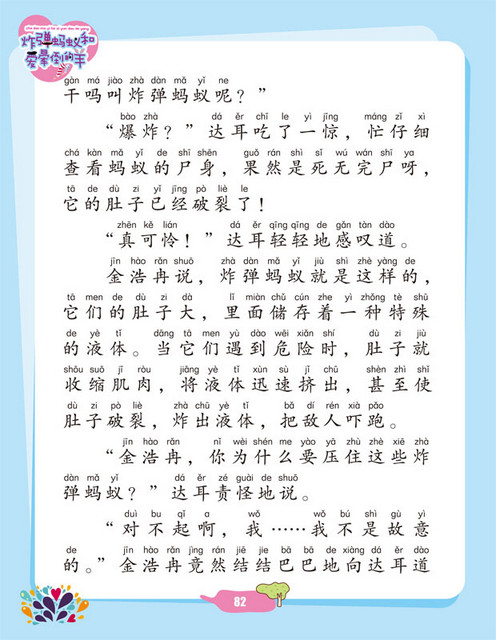 炸弹蚂蚁和
爱晕倒的羊
gàn má jiào zhà dàn mǎ yǐ ne
干吗叫炸弹蚂蚁呢？”
bào zhà dá ěr chī le yì jīng máng zǐ xì
“爆炸？”达耳吃了一惊，忙仔细
chá kàn mǎ yǐ de shī shēn guǒ rán shì sǐ wú wán shī ya
查看蚂蚁的尸身，果然是死无完尸呀，
tā de dù zi yǐ jīng pò liè le
它的肚子已经破裂了！
zhēn kě lián dá ěr qīng qīng de gǎn tàn dào
“真可怜！”达耳轻轻地感叹道。
jīn hào rǎn shuō zhà dàn mǎ yǐ jiù shì zhè yàng de
金浩冉说，炸弹蚂蚁就是这样的，
tā men de dù zi dà lǐ miàn chǔ cún zhe yì zhǒng tè shū
它们的肚子大，里面储存着一种特殊
de yè tǐ dāng tā men yù dào wēi xiǎn shí dù zi jiù
的液体。当它们遇到危险时，肚子就
shōu suō jī ròu jiāng yè tǐ xùn sù jǐ chū shèn zhì shǐ
收缩肌肉，将液体迅速挤出，甚至使
dù zi pò liè zhà chū yè tǐ bǎ dí rén xià pǎo
肚子破裂，炸出液体，把敌人吓跑。
jīn hào rǎn nǐ wèi shén me yào yā zhù zhè xiē zhà
“金浩冉，你为什么要压住这些炸
dàn mǎ yǐ dá ěr zé guài de shuō
弹蚂蚁？”达耳责怪地说。
duì bu qǐ a wǒ wǒ bú shì gù yì
“对不起啊，我……我不是故意
de jīn hào rǎn jìng rán jiē jie bā bā de xiàng dá ěr dào
的。”金浩冉竟然结结巴巴地向达耳道
82